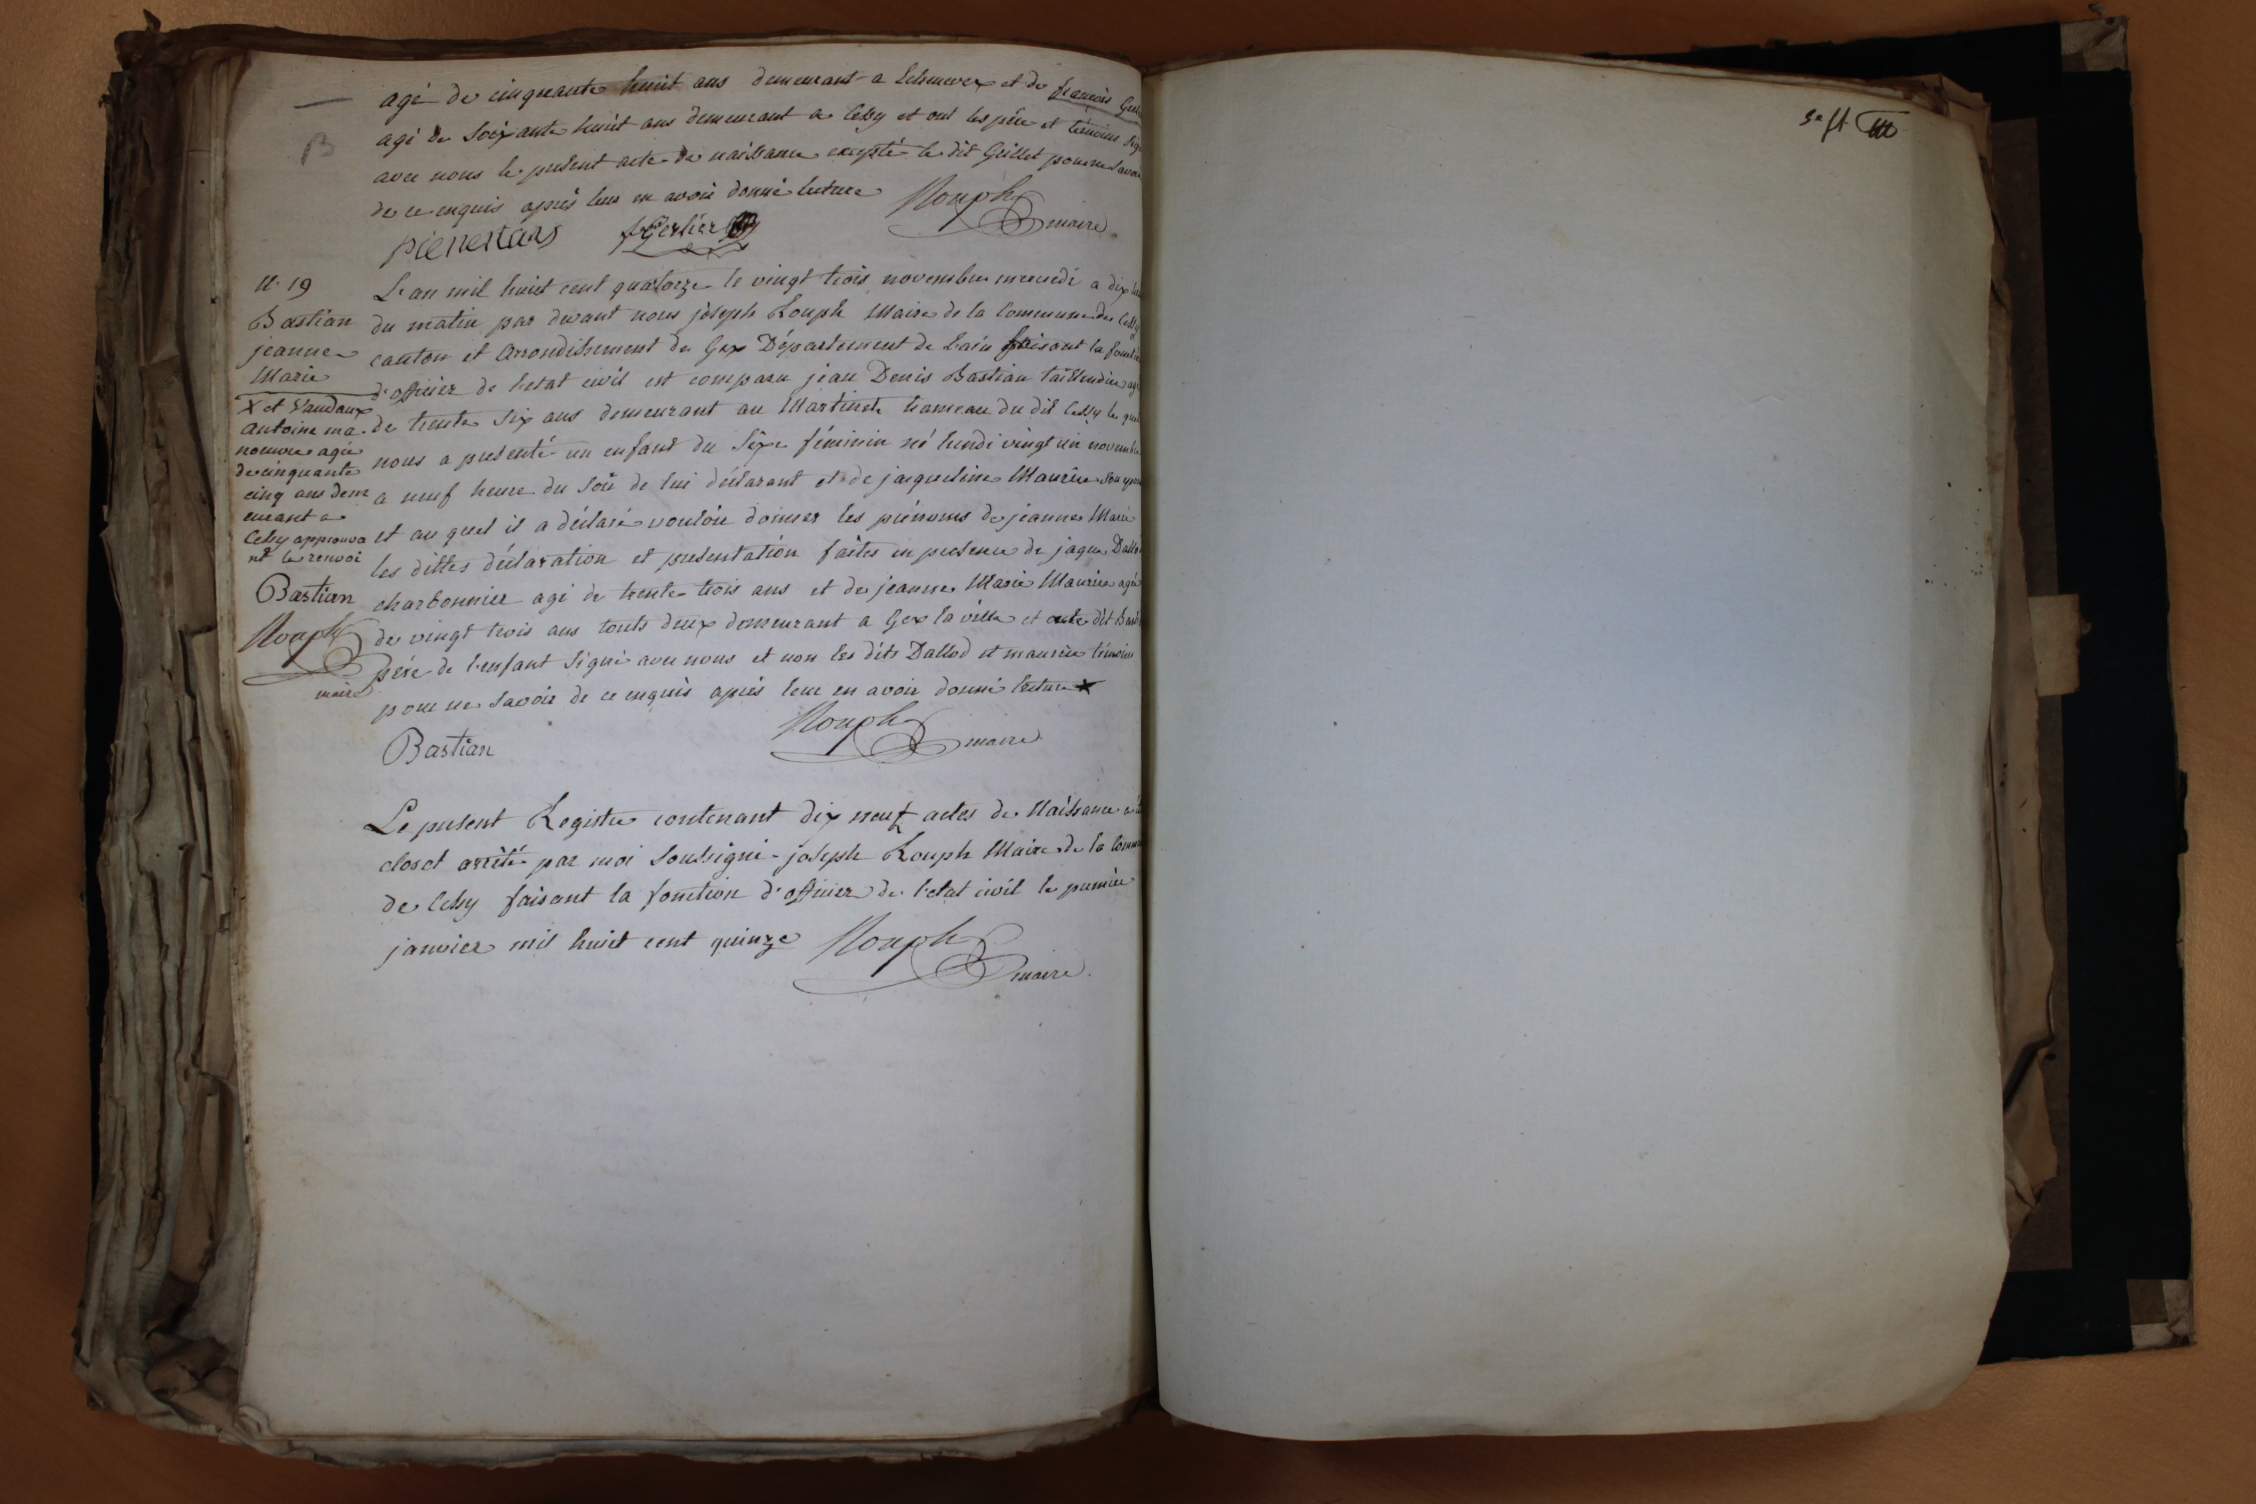 agé de cinquante huit ans demeurant a Echenevex et de françois
agé de soixante huit ans demeurant a Cessy et ont les père et témoins
avec nous le présent acte de naissance excepté le dit Guillet pour ne savoir
de ce enquis après leur en avoir donné lecture
Rouph maire
pierre
f Gerlier
N. 19
Bastian
jeanne
Marie
L'an mil huit cent quatorze le vingt trois novembre mercredi a dix
du matin par devant nous joseph Rouph Maire de la Commune de Cessy
canton et Arrondissement de Gex Département de l'ain faisant la
d'officier de l'etat civil est comparu jean Denis Bastian taillandier
de trente six ans demeurant au Martinet hameau du dit Cessy le quel
nous a presenté un enfant du sexe féminin né lundi vingt un novembre
a neuf heure du soir de lui déclarant et de jacqueline Maurier son
et au quel il a déclaré vouloir donner les prénoms de jeanne Marie
les dittes déclaration et présentation faites en presence de jaques Dallod
charbonnier agé de trente trois ans et de jeanne Marie Maurier agée
de vingt trois ans touts deux demeurant a Gex la ville et dit
père de l'enfant signé avec nous et non les dits Dallod et maurier témoins
pour ne savoir de ce enquis après leur en avoir donné lecture X
X et Vaudaux
antoine ma
noeuvre agé
de cinquante
cinq ans dem
eurant a
Cessy approuva
nt le renvoi
Bastian
Rouph
maire
Bastian
Rouph maire
Le present Registre contenant dix neuf actes de Naissance
clos et arrêté par moi soussigné joseph Rouph Maire de la
de Cessy faisant la fonction d'officier de l'etat civil le premier
janvier mil huit cent quinze
Rouph maire